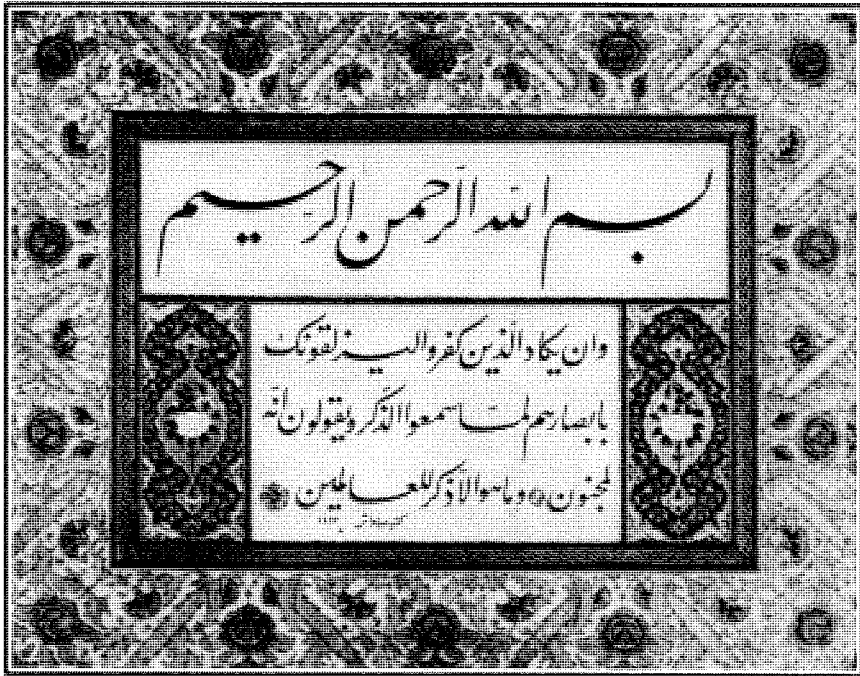 بسم الله الرحمن الرحیم
وان یکاد الذین کفروا لیزلقونک
بابصارهم لمّا سمعوا الذکر و یقولون انّه
لمجنون و ما هو الا ذکر للعالمین